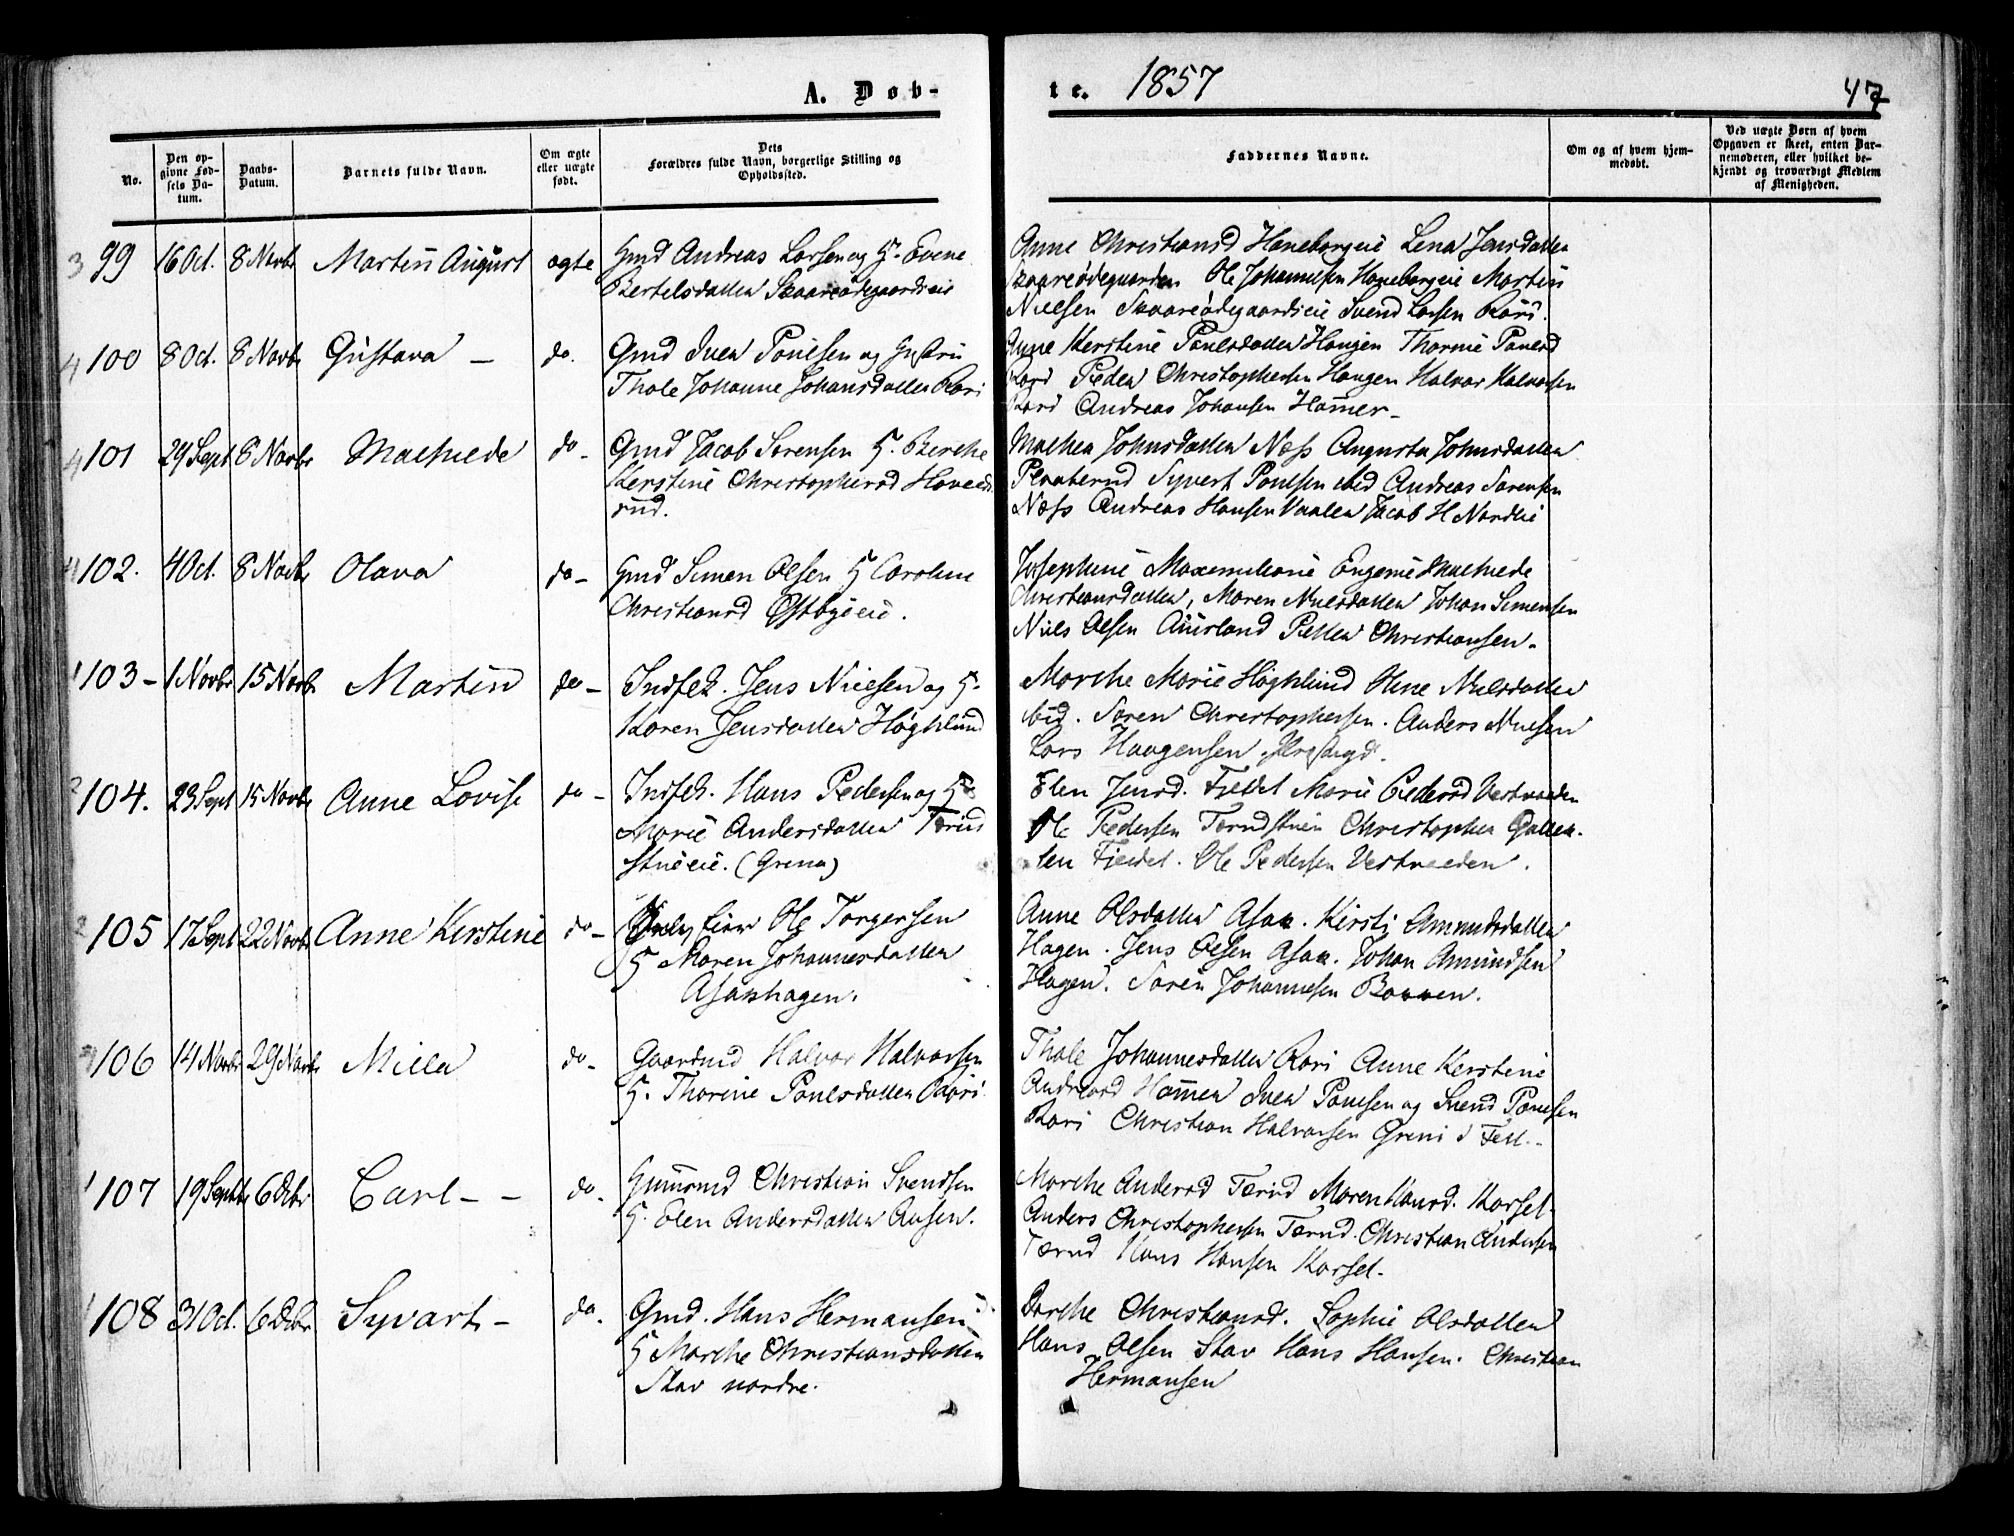 A. Døb-
te. 1857
47
No.
Den op-
givne Fød-
sels Da-
tum.
Daabs-
Datum.
Barnets fulde Navn.
Om ægte
eller uægte
født.
Dets
Forældres fulde Navn, borgerlige Stilling og
Opholdssted.
Faddernes Navne.
Om og af hvem hjem-
medøbt.
Ved uægte Børn af hvem
Opgaven er skeet, enten Bar-
nemoderen, eller hvilket be-
kjendt og troværdigt Medlem
af Menigheden.
3 99 16 Oct. 8 Novbr Martin August ægte Gmd Andreas Larsen og H. Evene
Bertelsdatter Skaareødegaardseie
Anne Christiansd Haneborgeie Lena Jensdatter
Skaareødegaarden Ole Johannesen Haneborgeie Martin
Nielsen Skaareødegaardseie Svend Larsen Røri.
4 100 8 Oct. 8 Novbr Gustava - do. Gmd Iver Poulsen og Hustru
Thale Johanne Johansdatter Røri
Anne Kerstine Poulsdatter Haugen Thorine Poulsd
Peder Christophersen Haugen Halvor Halvorsen
Andreas Johansen Hamer-
4 101 29 Sept 8 Novbr Mathilde do- Gmd Jacob Sørensen H. Berthe
Kerstine Christophersd Hoveds
rud.
Mathea Johnsdatter Næss Augusta Johnsdatter
Syvert Poulsen ibid Andreas Sørensen
Næss Andreas Hansen Jacob H Nordlie
4 102. 4 Oct. 8 Novbr Olava do- Gmd Simen Olsen H Caroline
Christiansd Østbyeie.
Josephine Maximiliane Eugenie Mathilde
Christiansdatter, Maren Nielsdatter Johan Simensen
Niels Olsen Aursland Petter Christiansen-
1 103- 1 Novbr 15 Novbr Martin do- Indsk. Jens Nielsen og H.
Karen Jensdatter Høghlund
Marthe Marie Høghlund Oline Nielsdatter
ibid. Søren Christophersen. Anders Nielsen
Lars Haagensen
2 104. 23 Sept 15 Novbr Anne Lovise do- Indsk. Hans Pedersen og H
Marie Andersdatter Tærud
stueeie. (Grena)
Elen Jensd. Fjeldet Marie Pedersd Vestreeden
Ole Pedersen Tærudstuen Christopher
sen Fjeldet. Ole Pedersen Vestreeden.
2 105 17 Sept 22 Novbr Anne Kerstine do- Ole Torgersen
H Maren Johannesdatter
Asakhagen.
Anne Olsdatter Asak. Kirsti Amundsdatter
Hagen. Jens Olsen Asak. Johan Amundsen
Hagen. Søren Johannesen Bakken.
106 14 Novbr 29 Novbr Milla do- Gaardmd Halvor Halvorsen
H. Thorine Poulsdatter Røri
Thale Johannesdatter Røri Anne Kerstine
Andersd Hammer Iver Poulsen og Svend Poulsen
Røri Christian Halvorsen Greni i
1 107 19 Septbr 6 Dcbr Carl - - do- Christian Svendsen
H. Elen Andersdatter Aasen.
Marthe Andersd Tærud Maren Hansd. Korset.
Anders Christophersen Tærud. Christian Andersen
Tærud Hans Hansen Korset.
1 108 31 Oct. 6 Dcbr Syvart - do- Gmd. Hans Hermansen
H Marthe Christiansdatter
Stav nordre.
Dorthe Christiansd. Sophie Olsdatter
Hans Olsen Stav Hans Hansen. Christian
Hermansen